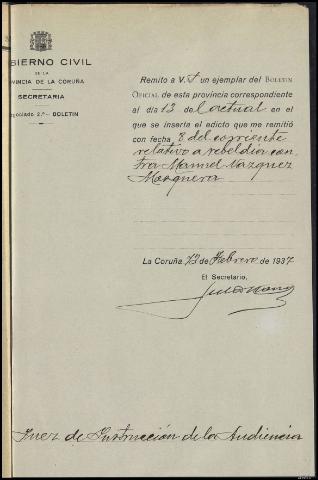 BIERNO CIVIL
DE LA
OVINCIA DE LA CORUÑA
SECRETARIA
egociado 2.º- BOLETIN
Remito a V. S un ejemplar del BOLETIN
OFICIAL de esta provincia correspondiente
al día 13 del actual en el
que se inserta el edicto que me remitió
con fecha 8 del corriente
relativo a rebeldia con-
tra Manuel Vazquez
Mosquera
La Coruña, 13 de Febrero de 1937
El Secretario,
Juez de Instrucción de la Audiencia